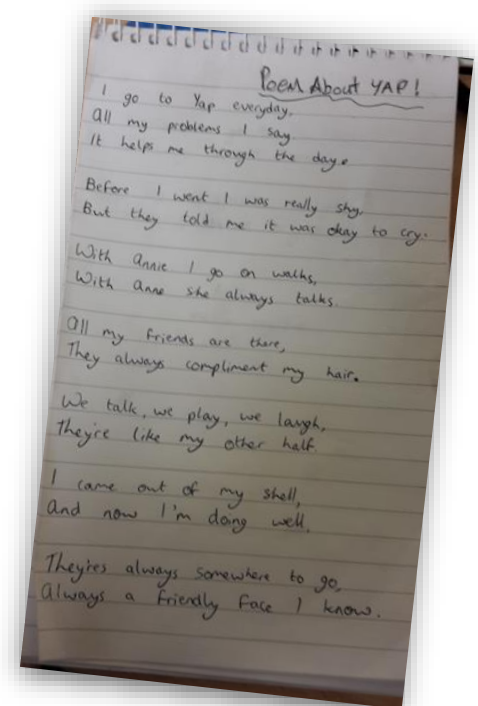 Poem About YAP!
I go to Yap everyday,
All my problems I say
It helps me through the day.
Before I went I was really shy,
But they told me it was okay to cry.
With Annie I go on walks,
With Anne she always talks.
All my friends are there,
They always compliment my hair.
We talk, we play, we laugh,
They're like my other half.
I came out of my shell,
And now I'm doing well.
They'res always somewhere to go,
Always a friendly face I know.